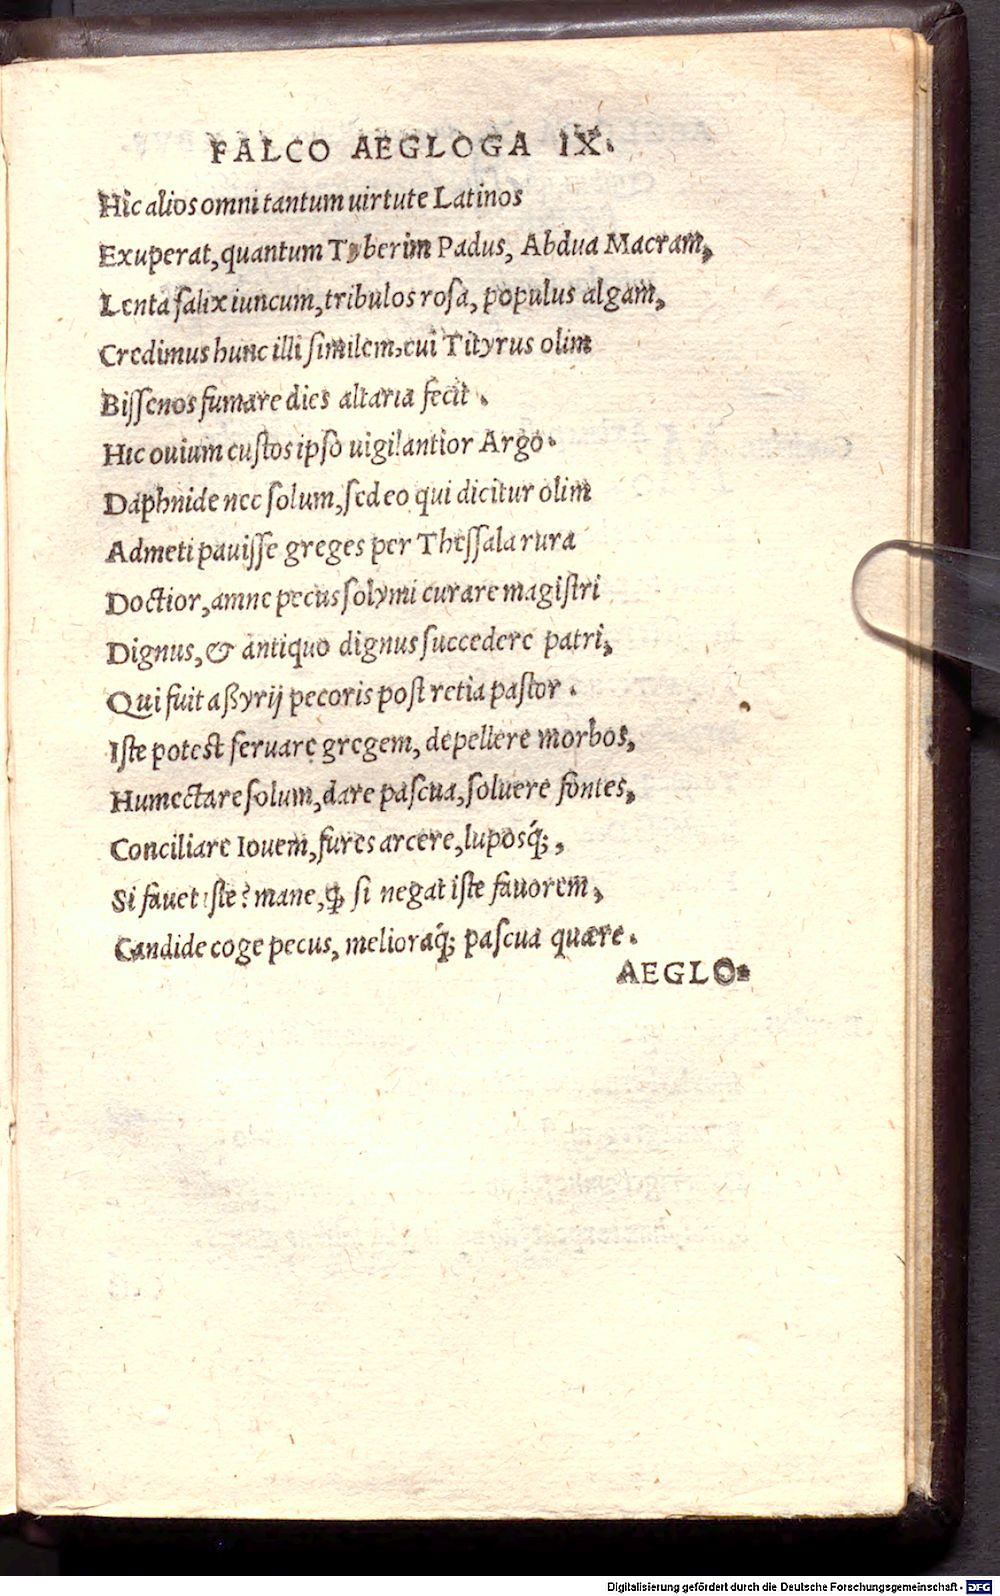 FALCO AEGLOGA IX.
Hic alios omni tantum uirtute Latinos
Exuperat, quantum Tyberim Padus, Abdua Macram,
Lenta salix iuncum, tribulos rosa, populus algam,
Credimus hunc illi similem, cui Tityrus olim
Bissenos fumare dies altaria fecit.
Hic ouium custos ipso uigilantior Argo.
Daphnide nec solum, sed eo qui dicitur olim
Admeti pauisse greges per Thessala rura
Doctior, amne pecus solymi curare magistri
Dignus, & antiquo dignus succedere patri,
Qui fuit aßyrij pecoris post retia pastor.
Iste potest seruare gregem, depellere morbos,
Humectare solum, dare pascua, soluere fontes,
Conciliare Iouem, fures arcere, luposq́;,
Si fauet iste? mane, ꝙ si negat iste fauorem,
Candide coge pecus, melioraq́; pascua quære.
AEGLO-
Digitalisierung gefördert durch die Deutsche Forschungsgemeinschaft - DFG